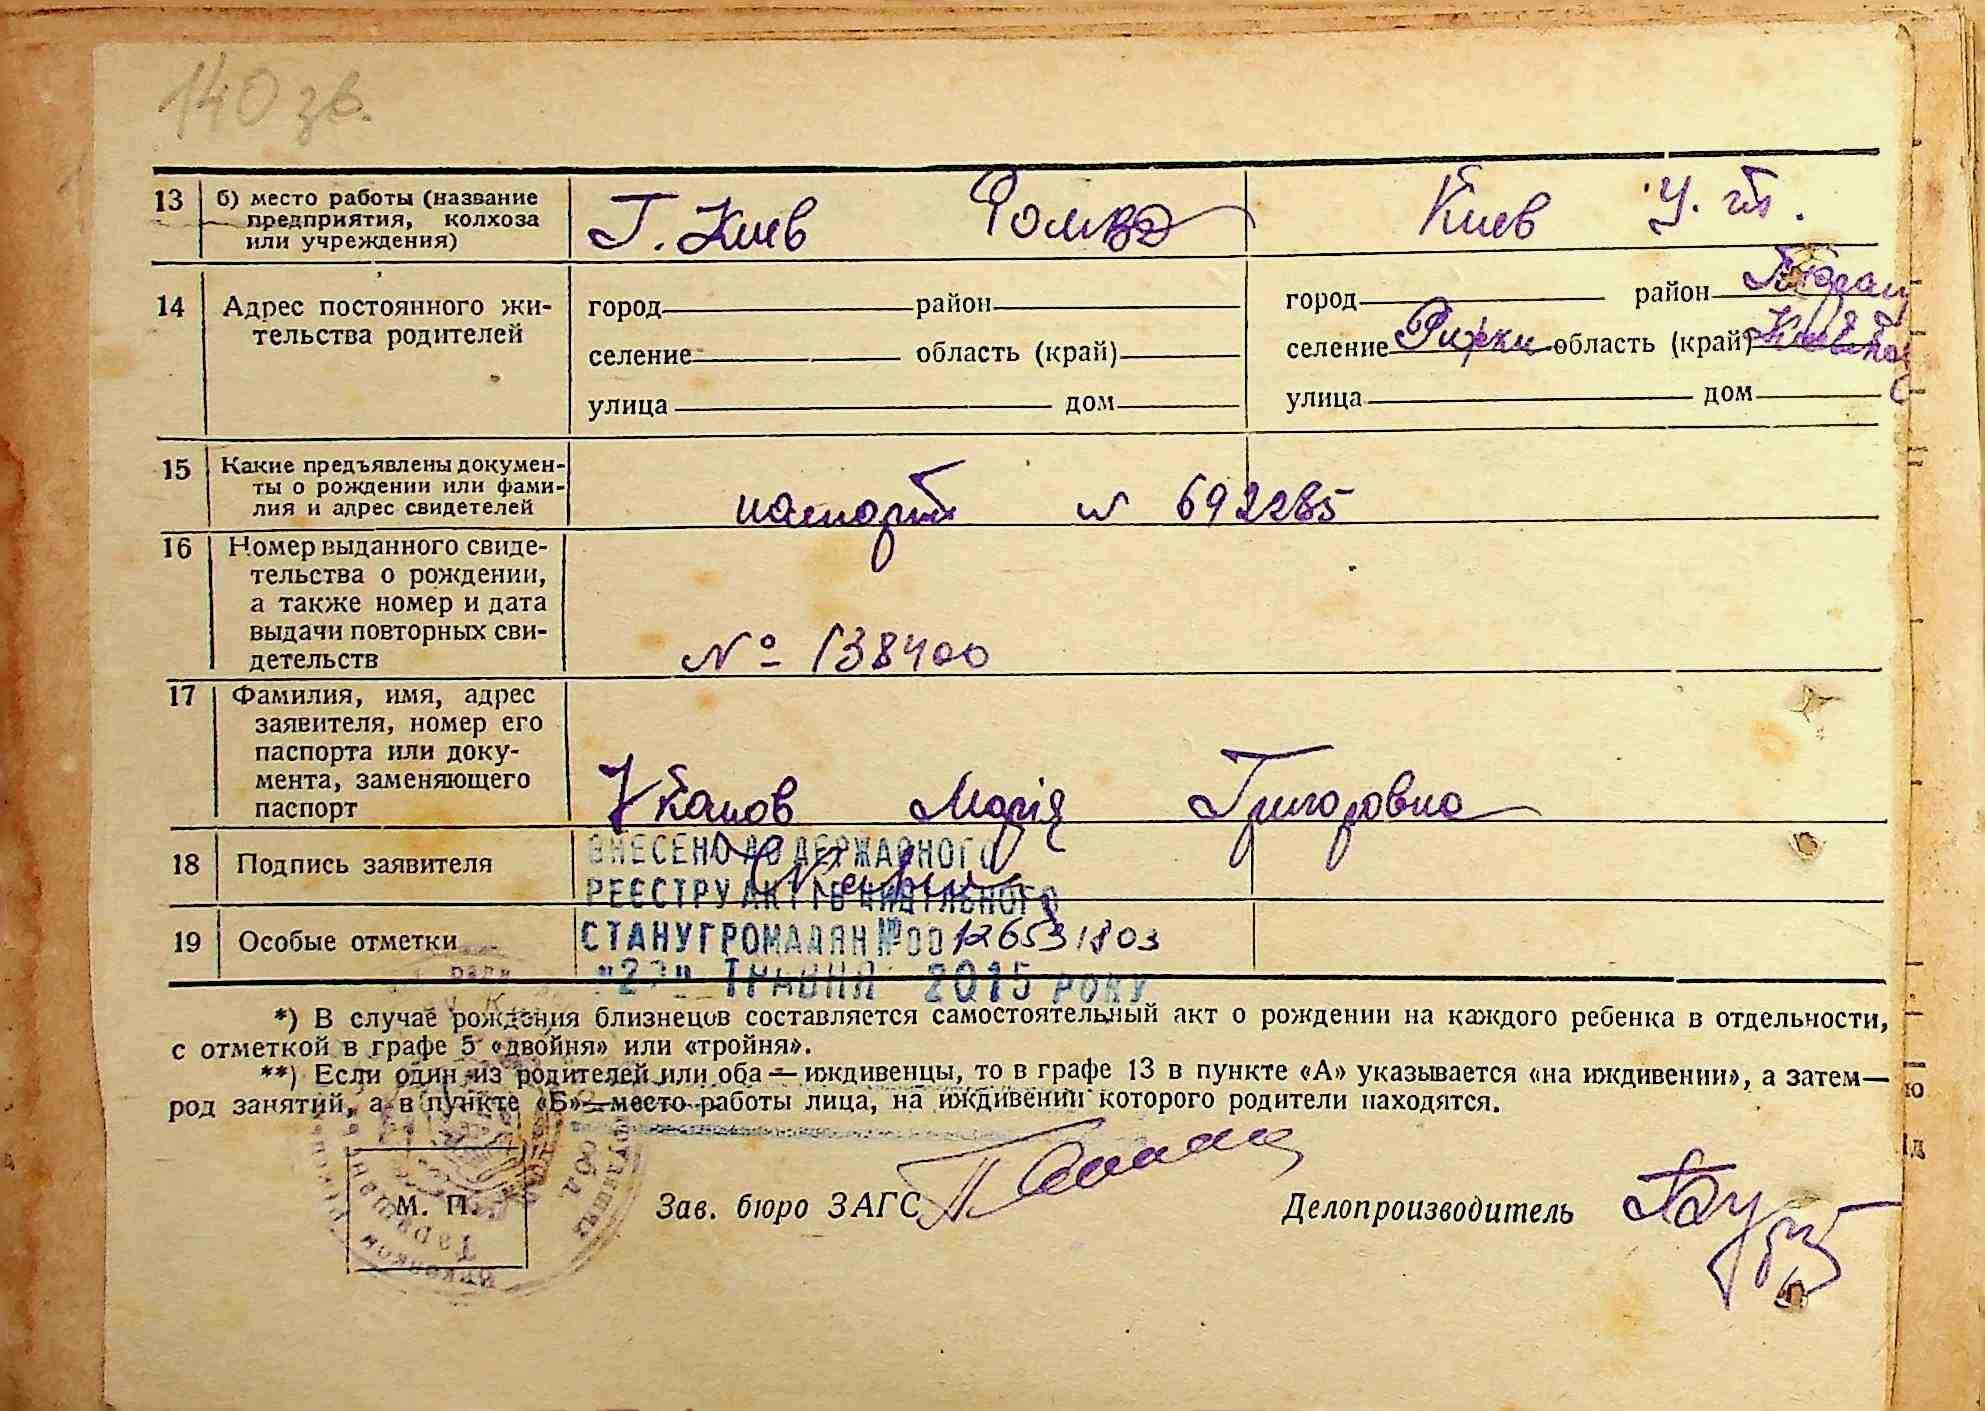 140 зв.
13 б) место работы (название предприятия, колхоза или учреждения) Г. Киев Киев У.
14 Адрес постоянного жи-
тельства родителей
город район
селение область (край)
улица дом
город район
селение Рижки область (край)
улица дом
15 Какие предъявлены докумен-
ты о рождении или фами-
лия и адрес свидетелей
паспорт № 692285
16 Номер выданного свиде-
тельства о рождении,
а также номер и дата
выдачи повторных сви-
детельств
№ 138400
17 Фамилия, имя, адрес
заявителя, номер его
паспорта или доку-
мента, заменяющего
паспорт
Марія Григоровна
18 Подпись заявителя
ВНЕСЕНО ДО ДЕРЖАВНОГО
РЕЄСТРУ АКТІВ ЦИВІЛЬНОГО
19 Особые отметки
СТАНУ ГРОМАДЯН № 00126531803
ТРАВНЯ 2015 РОКУ
*) В случае рождения близнецов составляется самостоятельный акт о рождении на каждого ребенка в отдельности,
с отметкой в графе 5 «двойня» или «тройня».
**) Если один из родителей или оба — иждивенцы, то в графе 13 в пункте «А» указывается «на иждивении», а затем—
род занятий, а в пункте «Б»—место работы лица, на иждивении которого родители находятся.
М. П.
Зав. бюро ЗАГС
Делопроизводитель